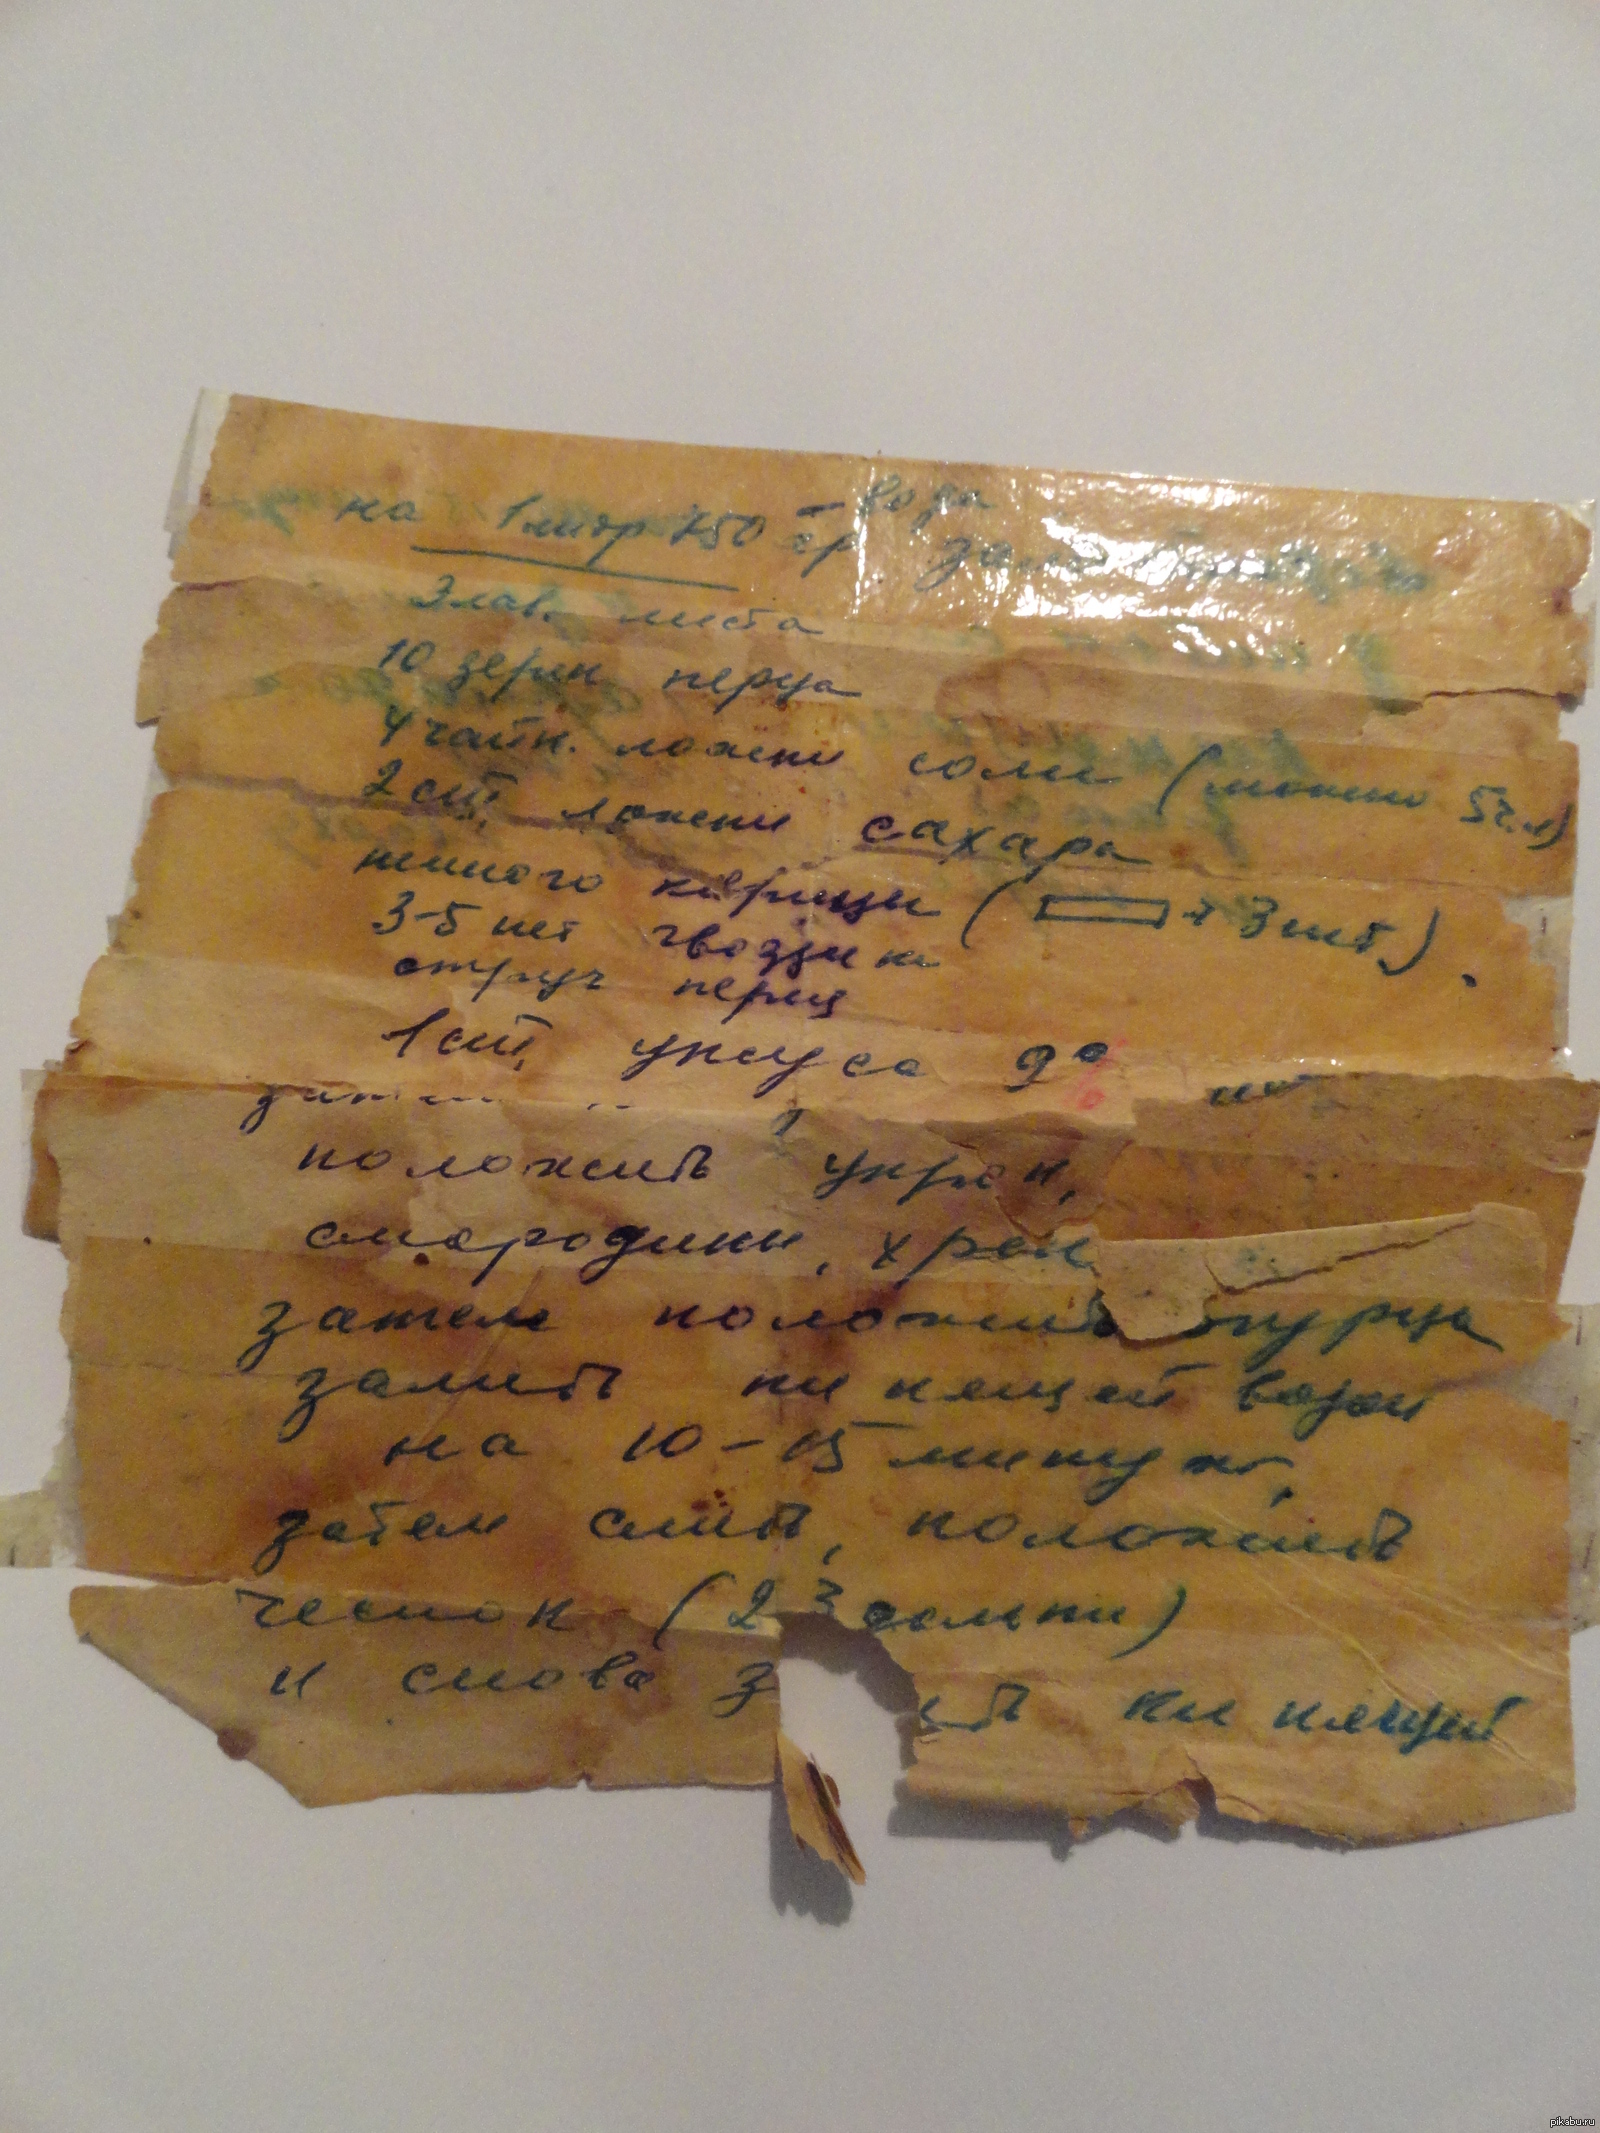 на 1 литр 750 гр – вода
3 лав. листа
10 зерен перца
4 чайн. ложки соли (можно 5 ч.л)
2 ст. ложки сахара
немного корицы ( + 3 шт.).
3-5 шт гвоздики
струч перец
1 ст. уксуса 9%
положить укроп,
смородины, хрен
затем положить огурцы
залить кипящей водой
на 10-15 минут,
затем слить, положить
чеснок (2 3 дольки)
и снова з ить кипящей
pikabu.ru